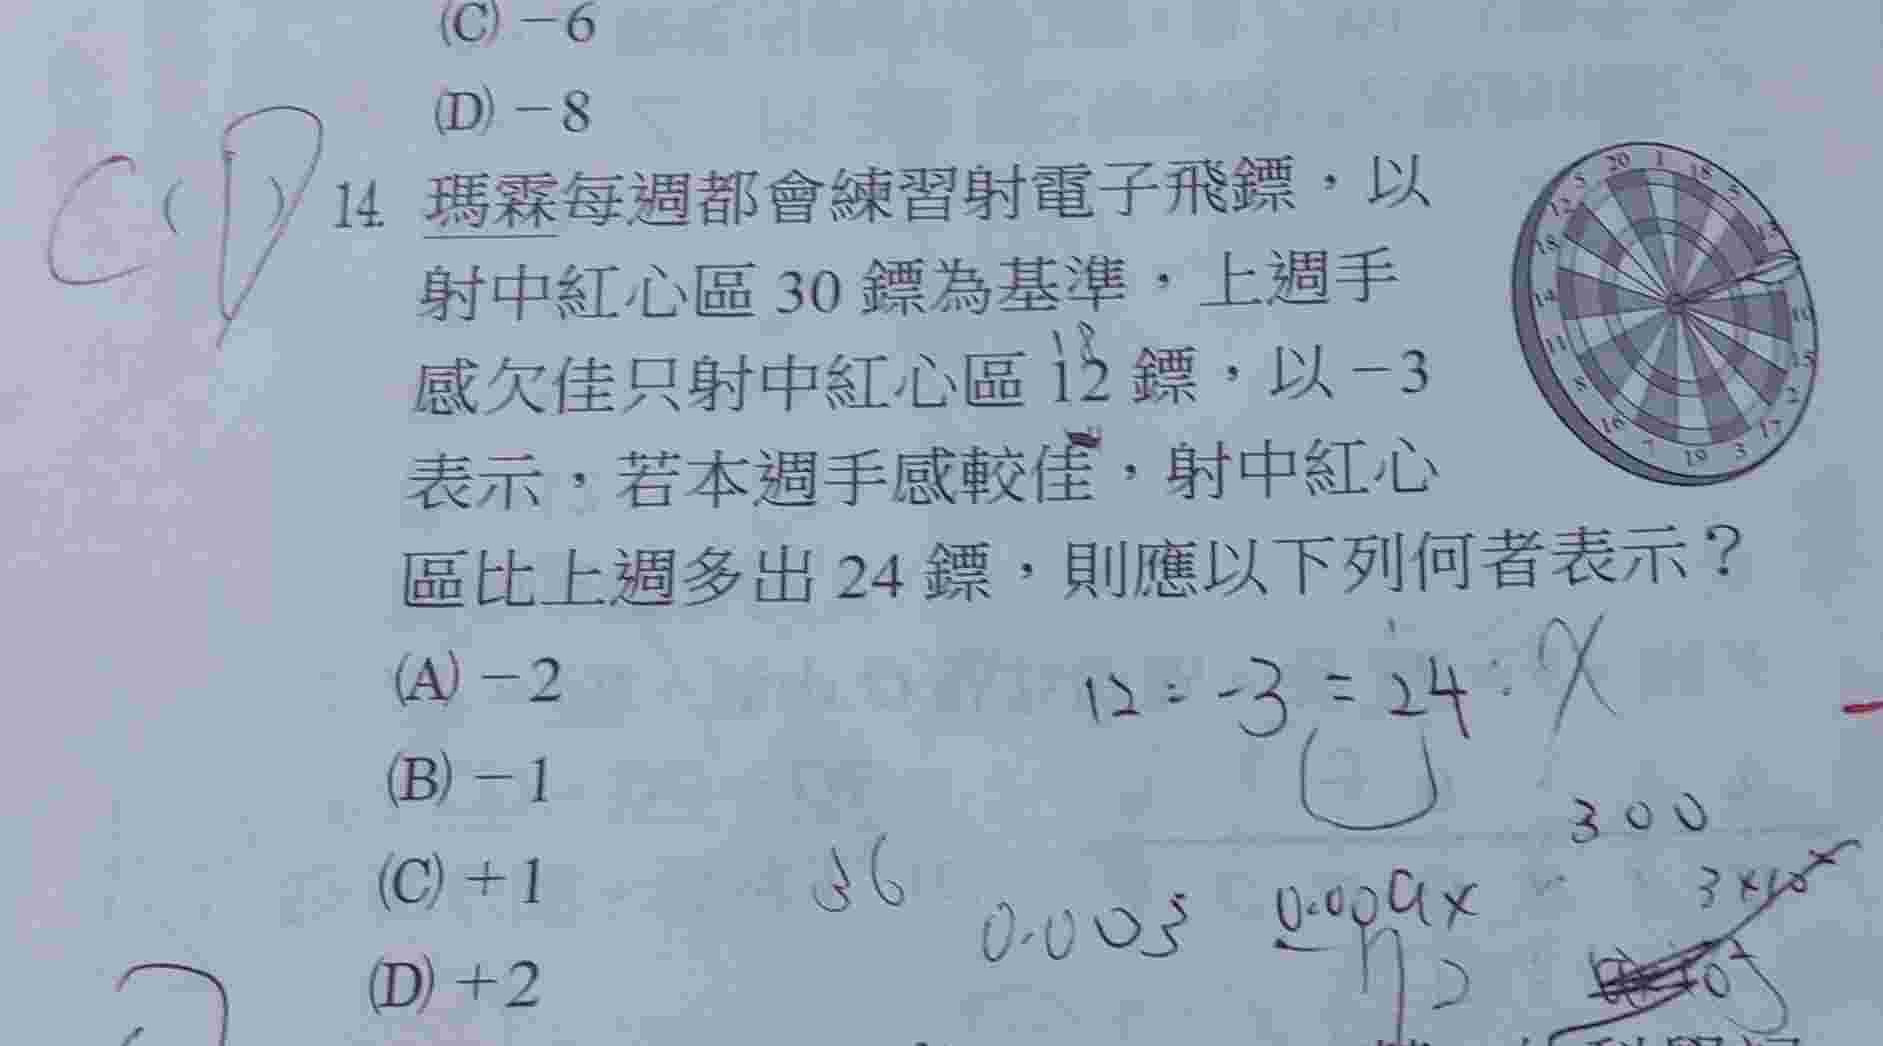 (C) －6
(D) －8
C ( D ) 14. 瑪霖每週都會練習射電子飛鏢，以
射中紅心區 30 鏢為基準，上週手
18
感欠佳只射中紅心區 12 鏢，以－3
表示，若本週手感較佳，射中紅心
區比上週多出 24 鏢，則應以下列何者表示？
20 1 18 5 12 14 11 8 16 7 19 3 17 2 15 10 13
(A) －2
12 : -3 = 24 : x
(B) －1
300
(C) ＋1
36
0.003
3×10
(D) ＋2